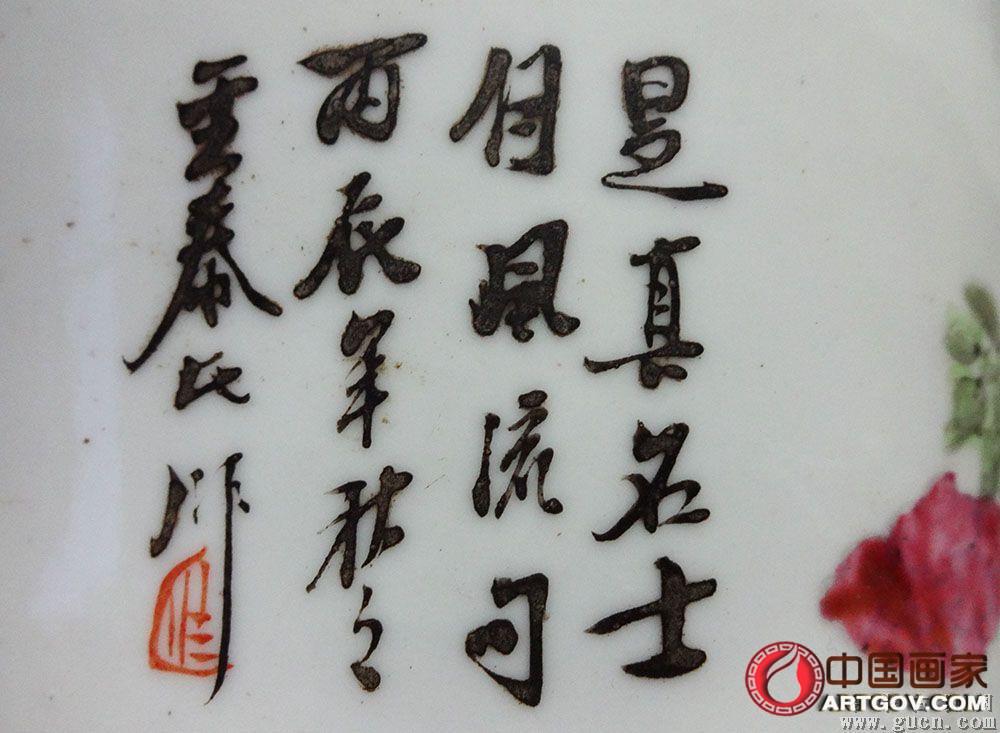 是真名士
自風流句
丙辰年秋
王泰氏作
中国画家
ARTGOV.COM
www.gucn.com